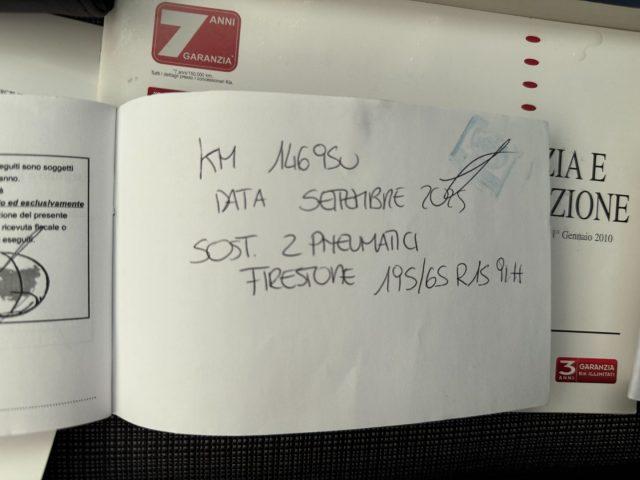 7 ANNI
GARANZIA
*7 anni/150.000 km.
Tutti i dettagli presso i concessionari Kia.
eguiti sono soggetti
anno.
o ed esclusivamente
zione del presente
ricevuta fiscale o
eseguiti.
KM 146950
DATA SETTEMBRE 2025
SOST. 2 PNEUMATICI
FIRESTONE 195/65 R15 91H
ZIA E
ZIONE
1° Gennaio 2010
3 ANNI
GARANZIA
KM ILLIMITATI